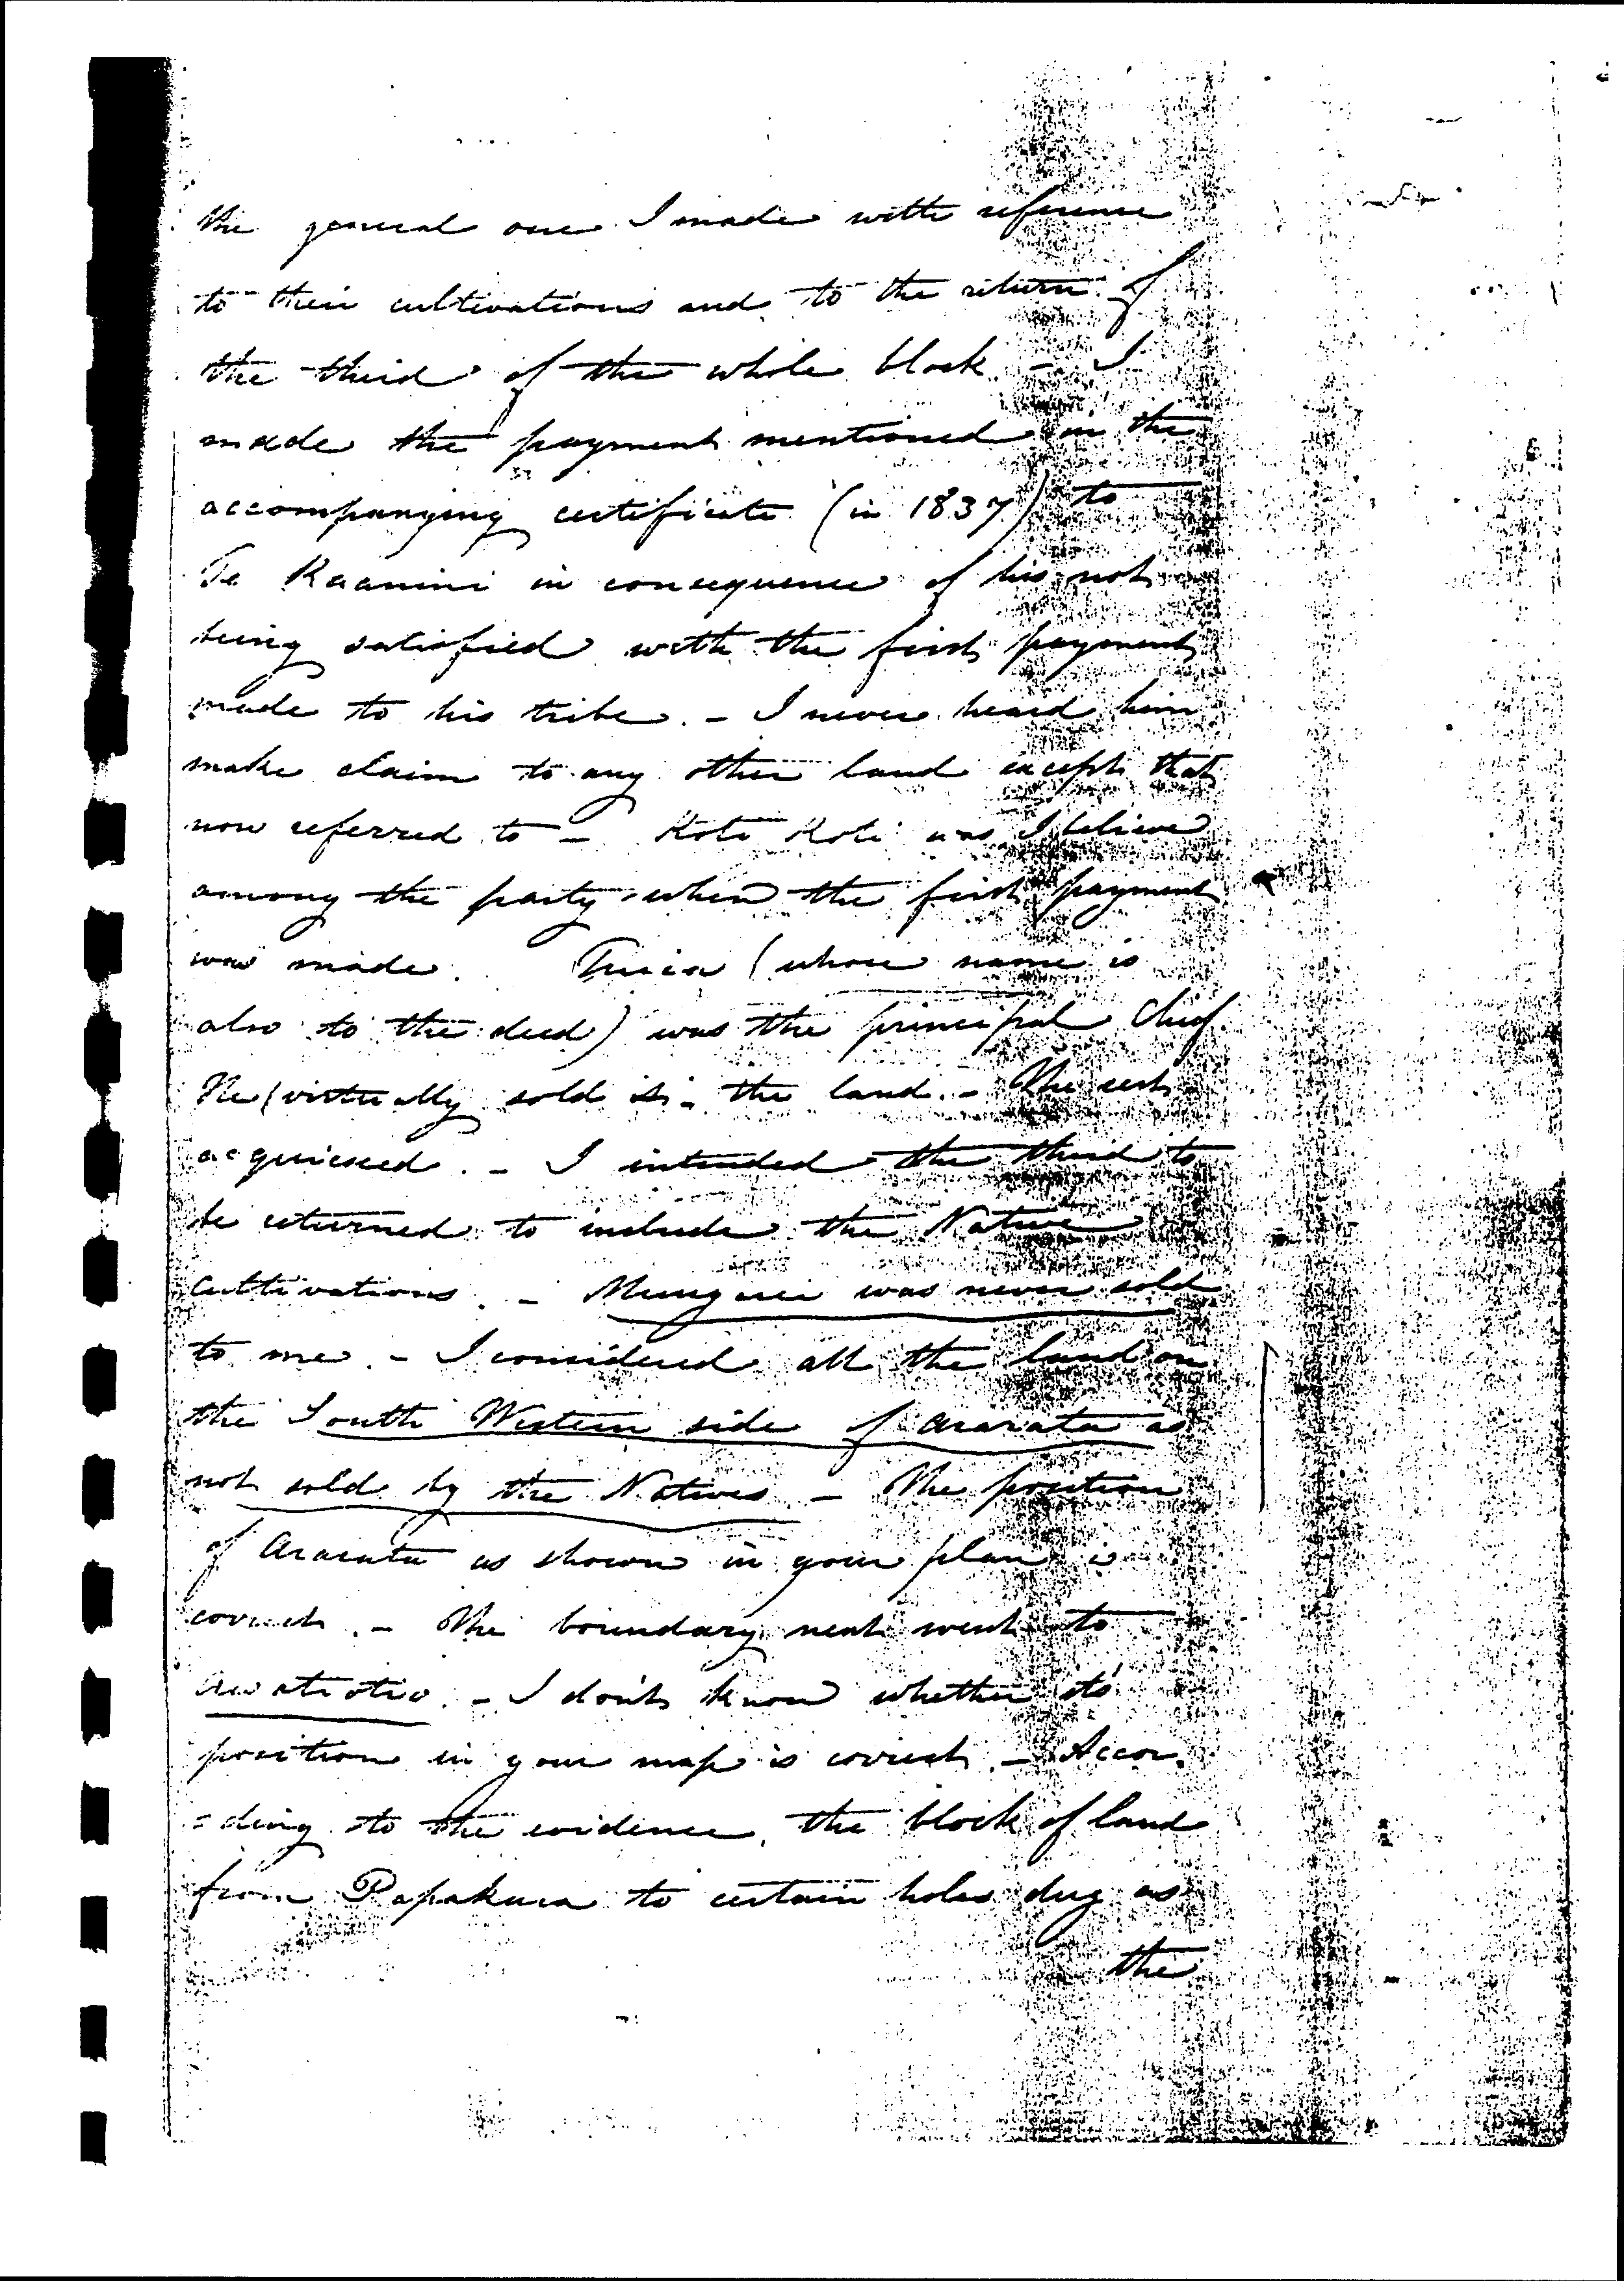 the general one I made with reference
to their cultivations and to the return of
the third of the whole block. - I
made the payment mentioned in the
accompanying certificate (in 1837) to
Te Kaanini in consequence of his not
being satisfied with the first payment
made to his tribe. - I never heard him
make claim to any other land except that
now referred to - Koti Koti was I believe
among the party when the first payment
was made. (whose name is
also to the deed) was the principal Chief.
He (virtually sold it - the land. - The rest
acquiesced. - I intended the third to
be returned to include the Native
cultivations. - was never sold
to me. - I considered all the land on
the South Western side of Ararata as
not sold by the Natives - The position
of Ararata as shown in your plan is
correct. - The boundary next went to
- I don't know whether its
position in your map is correct. - Accor-
=ding to the evidence, the block of land
from Papakura to certain holes dug as
the